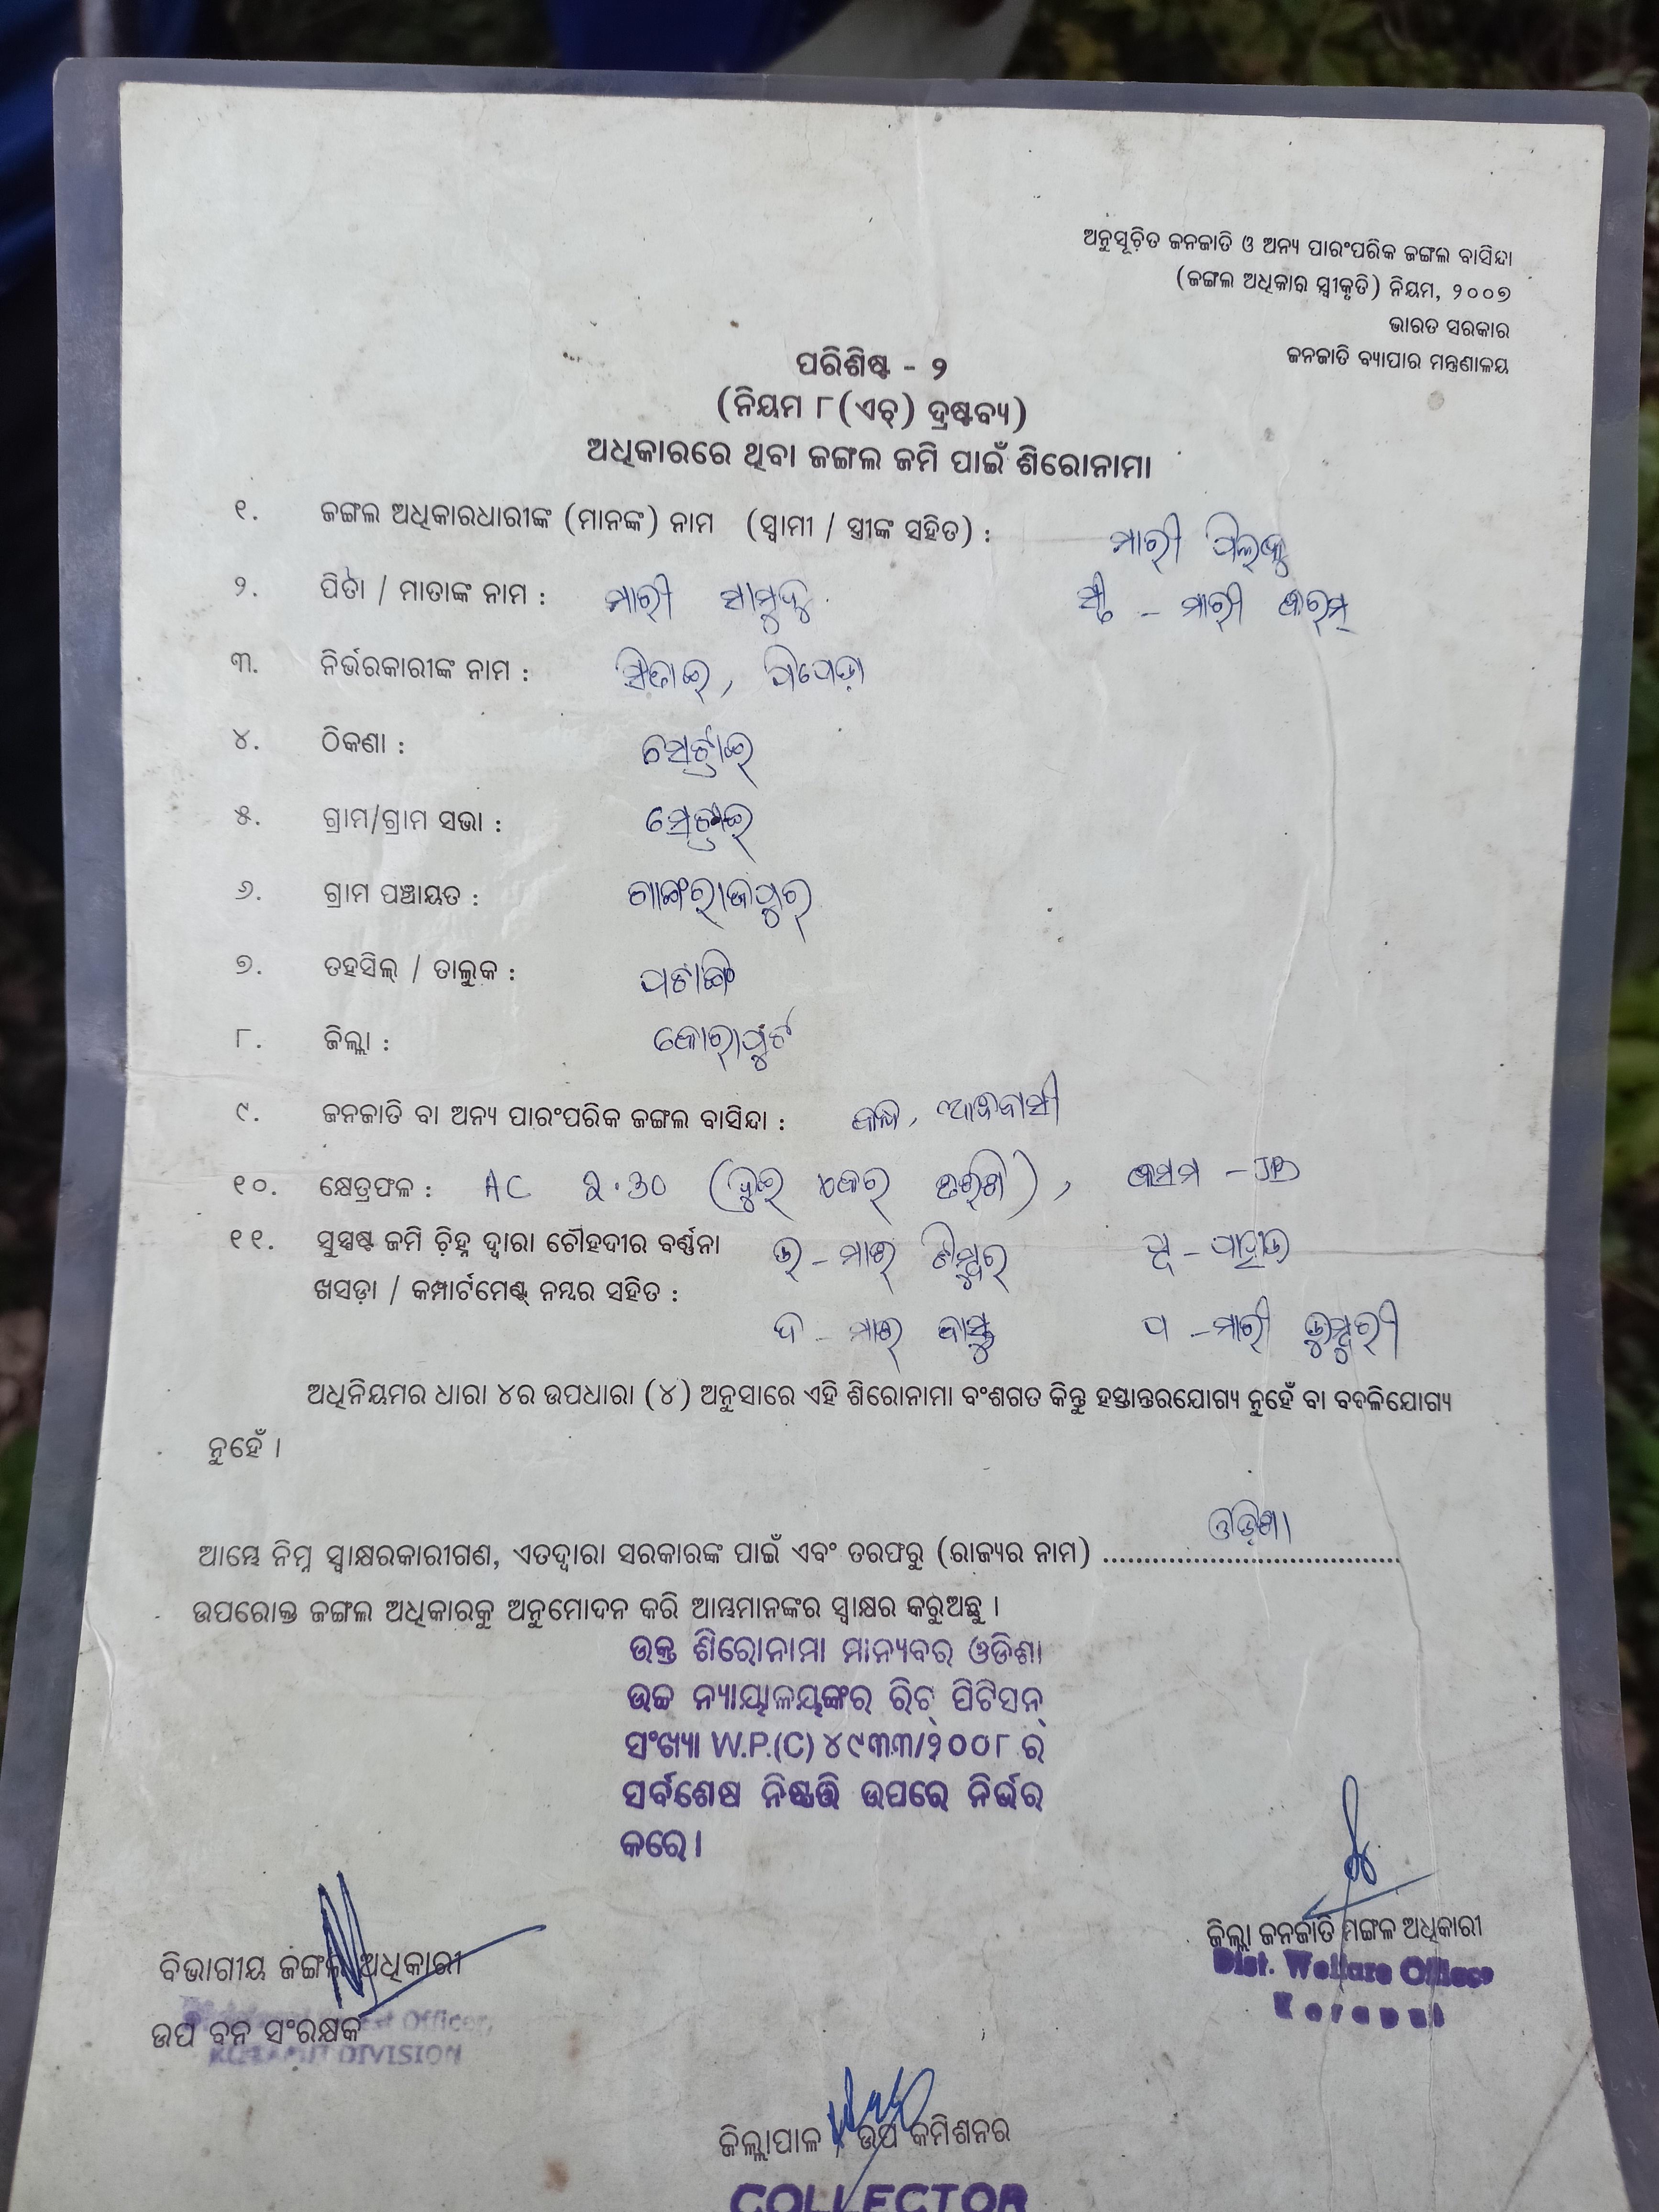 ଅନୁସୂଚିତ ଜନଜାତି ଓ ଅନ୍ୟ ପାରଂପରିକ ଜଙ୍ଗଲ ବାସିନ୍ଦା
(ଜଙ୍ଗଲ ଅଧିକାର ସ୍ୱୀକୃତି) ନିୟମ, ୨୦୦୭
ଭାରତ ସରକାର
ଜନଜାତି ବ୍ୟାପାର ମନ୍ତ୍ରଣାଳୟ
ପରିଶିଷ୍ଟ - ୨
(ନିୟମ ୮(ଏଚ୍) ଦ୍ରଷ୍ଟବ୍ୟ)
ଅଧିକାରରେ ଥିବା ଜଙ୍ଗଲ ଜମି ପାଇଁ ଶିରୋନାମା
୧. ଜଙ୍ଗଲ ଅଧିକାରଧାରୀଙ୍କ (ମାନଙ୍କ) ନାମ (ସ୍ୱାମୀ / ସ୍ତ୍ରୀଙ୍କ ସହିତ) : ମାରୀ
୨. ପିତା / ମାତାଙ୍କ ନାମ : ମାରୀ ସାମୁଦୁ ସ୍ତ୍ରୀ - ମାରୀ
୩. ନିର୍ଭରକାରୀଙ୍କ ନାମ :
୪. ଠିକଣା :
୫. ଗ୍ରାମ/ଗ୍ରାମ ସଭା :
୬. ଗ୍ରାମ ପଞ୍ଚାୟତ : ଗାଙ୍ଗରାଜପୁର
୭. ତହସିଲ୍ / ତାଲୁକ : ପଟାଙ୍ଗି
୮. ଜିଲ୍ଲା : କୋରାପୁଟ
୯. ଜନଜାତି ବା ଅନ୍ୟ ପାରଂପରିକ ଜଙ୍ଗଲ ବାସିନ୍ଦା : କନ୍ଧ, ଆଦିବାସୀ
୧୦. କ୍ଷେତ୍ରଫଳ : AC ୨.୩୦ (ଦୁଇ ଏକର ତିରିଶି), କିସମ -
୧୧. ସୁସ୍ପଷ୍ଟ ଜମି ଚିହ୍ନ ଦ୍ୱାରା ଚୌହଦୀର ବର୍ଣ୍ଣନା ଉ - ପୂ - ପାହାଡ
ଖସଡ଼ା / କମ୍ପାର୍ଟମେଣ୍ଟ୍ ନମ୍ବର ସହିତ :
ଦ - ପ - ମାରୀ ଡୁମ୍ବୁରୀ
ଅଧିନିୟମର ଧାରା ୪ର ଉପଧାରା (୪) ଅନୁସାରେ ଏହି ଶିରୋନାମା ବଂଶଗତ କିନ୍ତୁ ହସ୍ତାନ୍ତରଯୋଗ୍ୟ ନୁହେଁ ବା ବଦଳିଯୋଗ୍ୟ
ନୁହେଁ ।
ଓଡ଼ିଶା
ଆମ୍ଭେ ନିମ୍ନ ସ୍ୱାକ୍ଷରକାରୀଗଣ, ଏତଦ୍ୱାରା ସରକାରଙ୍କ ପାଇଁ ଏବଂ ତରଫରୁ (ରାଜ୍ୟର ନାମ) ....................................
ଉପରୋକ୍ତ ଜଙ୍ଗଲ ଅଧିକାରକୁ ଅନୁମୋଦନ କରି ଆମ୍ଭମାନଙ୍କର ସ୍ୱାକ୍ଷର କରୁଅଛୁ ।
ଉକ୍ତ ଶିରୋନାମା ମାନ୍ୟବର ଓଡିଶା
ଉଚ୍ଚ ନ୍ୟାୟାଳୟଙ୍କର ରିଟ୍ ପିଟିସନ୍
ସଂଖ୍ୟା W.P.(C) ୪୯୩୩/୨୦୦୮ ର
ସର୍ବଶେଷ ନିଷ୍ପତ୍ତି ଉପରେ ନିର୍ଭର
କରେ ।
ଜିଲ୍ଲା ଜନଜାତି ମଙ୍ଗଳ ଅଧିକାରୀ
Dist. Welfare Officer
Koraput
ବିଭାଗୀୟ ଜଙ୍ଗଲ ଅଧିକାରୀ
ଉପ ବନ ସଂରକ୍ଷକ
Officer,
DIVISION
ଜିଲ୍ଲାପାଳ / ଉପ କମିଶନର
COLLECTOR